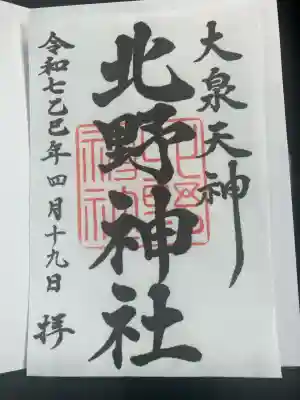 大泉天神
北野神社
令和七乙巳年四月十九日 拝